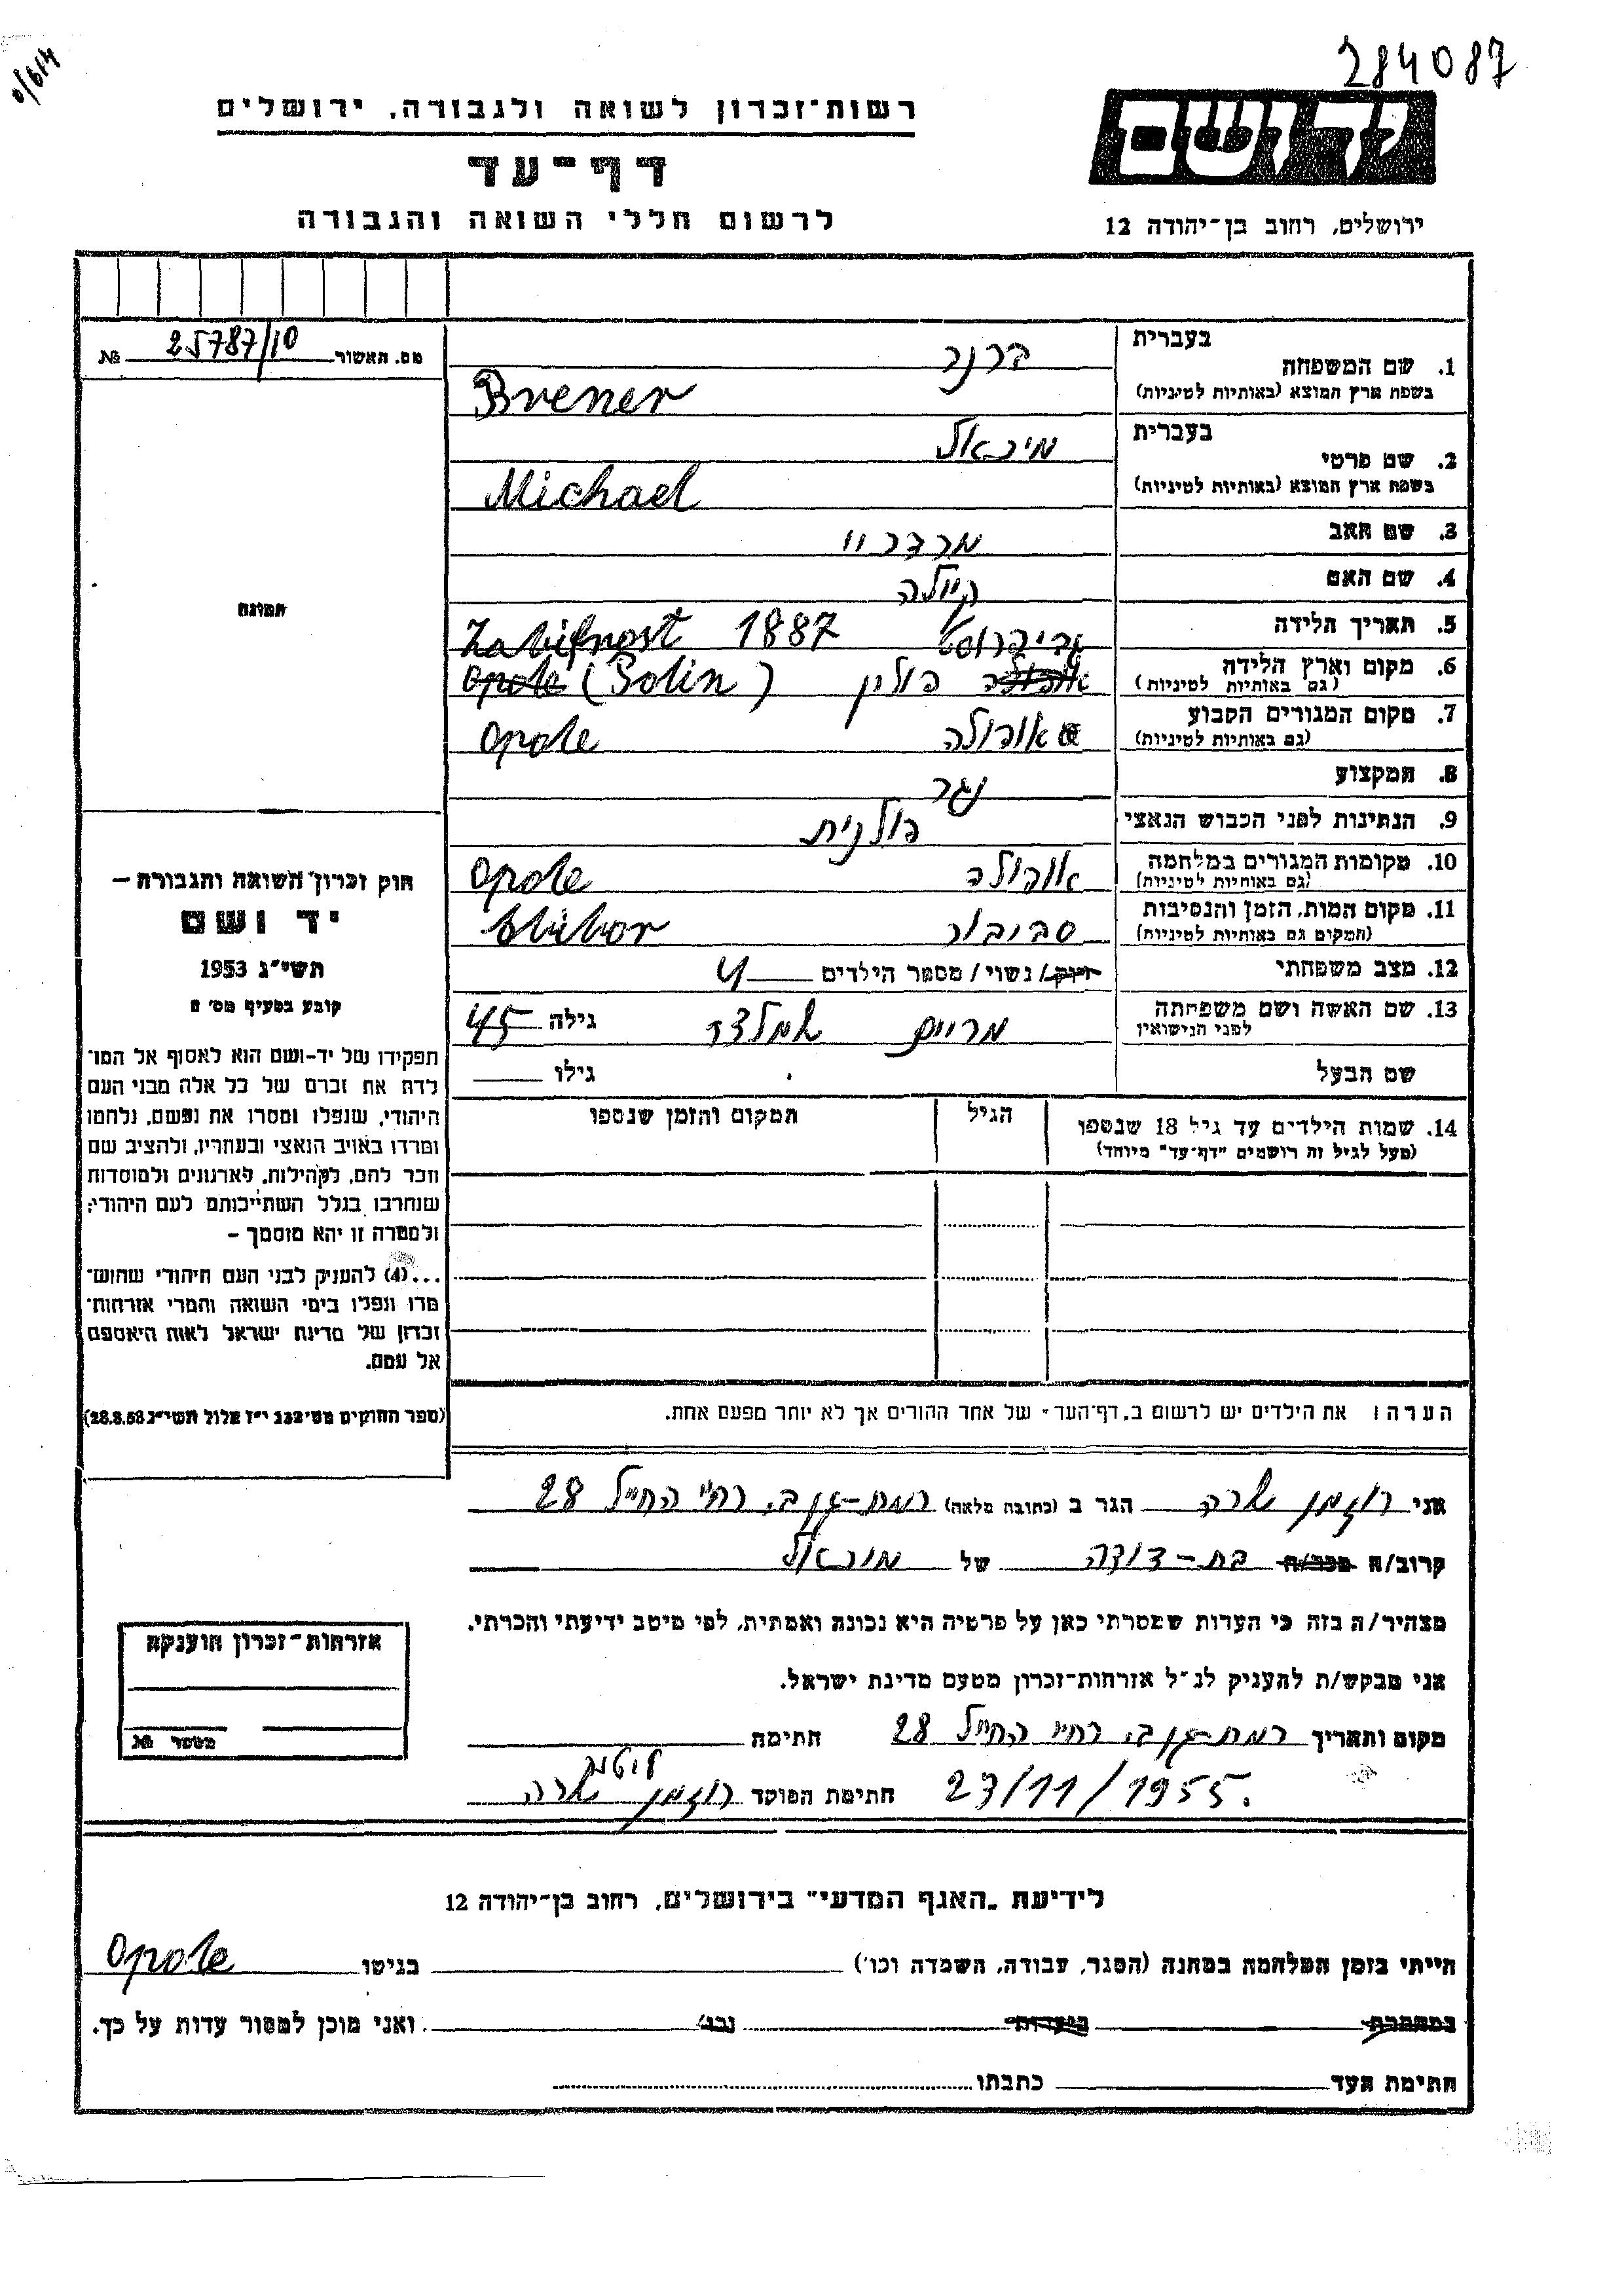 284087
רשות־זכרון לשואה ולגבורה, ירושלים
יד ושם
דף־עד
לרשום חללי השואה והגבורה
ירושלים, רחוב בן־יהודה 12
מס. האשור 25787/10 №
1. שם המשפחה בעברית ברנר
בשפת ארץ המוצא (באותיות לטיניות) Brener
2. שם פרטי בעברית מיכאל
בשפת ארץ המוצא (באותיות לטיניות) Michael
3. שם האב מרדכי
4. שם האם קיילה
5. תאריך הלידה 1887
6. מקום וארץ הלידה
(גם באותיות לטיניות) פולין Opole (Polin)
7. מקום המגורים הקבוע
(גם באותיות לטיניות) אופולה Opole
8. המקצוע נגר
9. הנתינות לפני הכבוש הנאצי פולנית
10. מקומות המגורים במלחמה
(גם באותיות לטיניות) אופולה Opole
11. מקום המות, הזמן והנסיבות
(המקום גם באותיות לטיניות) סביבור
12. מצב משפחתי רווק/נשוי/מספר הילדים 4
13. שם האשה ושם משפחתה
לפני הנישואין מרים גילה 45
שם הבעל גילו
14. שמות הילדים עד גיל 18 שנספו
(מעל לגיל זה רושמים "דף־עד" מיוחד)
הגיל
המקום והזמן שנספו
הערה: את הילדים יש לרשום ב„דף־העד" של אחד ההורים אך לא יותר מפעם אחת.
תמונה
חוק זכרון השואה והגבורה —
יד ושם
תשי"ג 1953
קובע בסעיף מס' 2
תפקידו של יד-ושם הוא לאסוף אל המו־
לדת את זכרם של כל אלה מבני העם
היהודי, שנפלו ומסרו את נפשם, נלחמו
ומרדו באויב הנאצי ובעוזריו, ולהציב שם
וזכר להם, לקהילות, לארגונים ולמוסדות
שנחרבו בגלל השתייכותם לעם היהודי;
ולמטרה זו יהא מוסמך —
...(4) להעניק לבני העם היהודי שהוש־
מדו ונפלו בימי השואה והמרי אזרחות־
זכרון של מדינת ישראל לאות היאספם
אל עמם.
(ספר החוקים מס' 132 י"ז אלול תשי"ג 28.8.53)
אני רוזמן שרה הגר ב (כתובת מלאה) רמת-גן ב, רח' החי"ל 28
קרוב/ה מכר/ה בת-דודה של מיכאל
מצהיר/ה בזה כי העדות שמסרתי כאן על פרטיה היא נכונה ואמתית, לפי מיטב ידיעתי והכרתי.
אני מבקש/ת להעניק לנ"ל אזרחות־זכרון מטעם מדינת ישראל.
מקום ותאריך רמת-גן ב, רח' החי"ל 28 חתימה
23/11/1955. חתימת הפוקד רוזמן שרה
אזרחות־זכרון הוענקה
מספר №
לידיעת „האגף המדעי" בירושלים, רחוב בן־יהודה 12
הייתי בזמן המלחמה במחנה (הסגר, עבודה, השמדה וכו') בגיטו Opole
במחתרת ביערות וכו' ואני מוכן למסור עדות על כך.
חתימת העד כתבתו